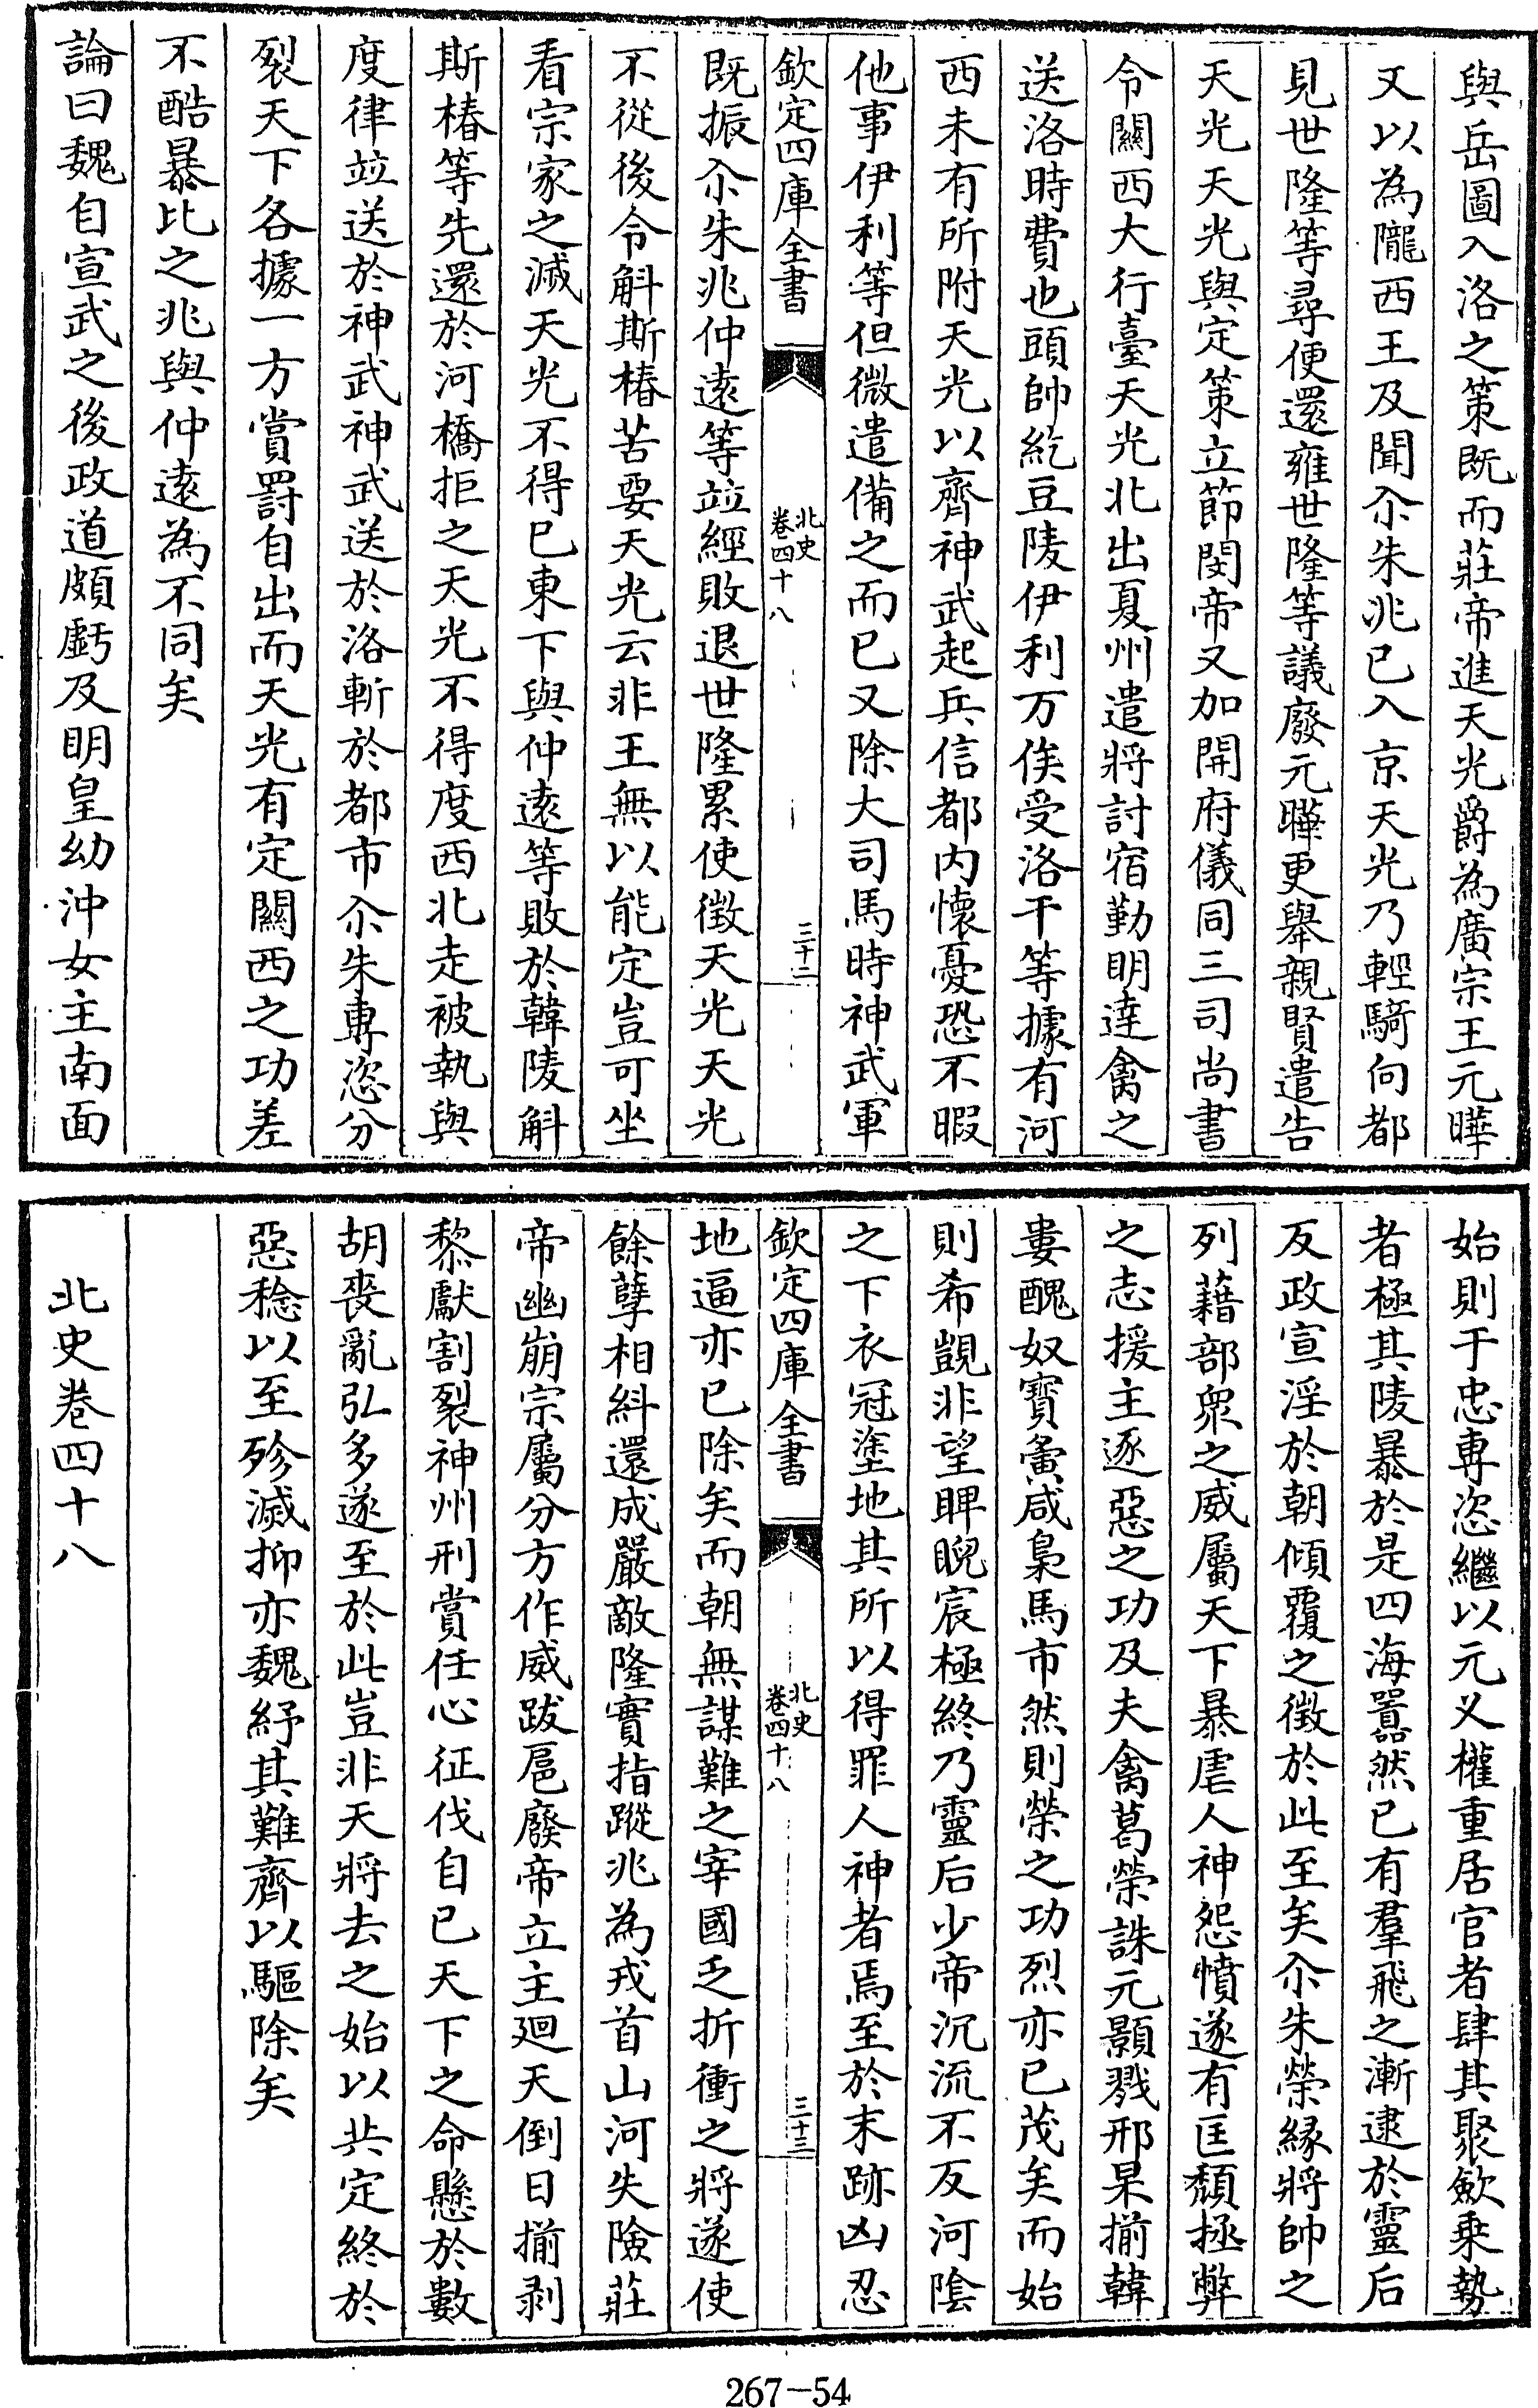 與岳圖入洛之策既而莊帝進天光爵為廣宗王元曄
又以為隴西王及聞尒朱兆已入京天光乃輕騎向都
見世隆等尋便還雍世隆等議廢元曄更舉親賢遣告
天光天光與定策立節閔帝又加開府儀同三司尚書
令關西大行臺天光北出夏州遣將討宿勤明達禽之
送洛時費也頭帥紇豆陵伊利万俟受洛干等據有河
西未有所附天光以齊神武起兵信都内懷憂恐不暇
他事伊利等但微遣備之而已又除大司馬時神武軍
欽定四庫全書
北史
卷四十八
三十二
既振尒朱兆仲遠等竝經敗退世隆累使徴天光天光
不從後令斛斯椿苦要天光云非王無以能定豈可坐
看宗家之滅天光不得已東下與仲遠等敗於韓陵斛
斯椿等先還於河橋拒之天光不得度西北走被執與
度律竝送於神武神武送於洛斬於都市尒朱專恣分
裂天下各據一方賞罰自出而天光有定關西之功差
不酷暴比之兆與仲遠為不同矣
論曰魏自宣武之後政道頗虧及明皇幼沖女主南面
始則于忠專恣繼以元义權重居官者肆其聚歛乗勢
者極其陵暴於是四海嚣然已有羣飛之漸逮於靈后
反政宣淫於朝傾覆之徴於此至矣尒朱榮縁將帥之
列藉部衆之威屬天下暴虐人神怨憤遂有匡頹拯弊
之志援主逐惡之功及夫禽葛榮誅元顥戮邢杲揃韓
婁醜奴寶夤咸梟馬市然則榮之功烈亦已茂矣而始
則希覬非望睥睨宸極終乃靈后少帝沉流不反河隂
之下衣冠塗地其所以得罪人神者焉至於末跡凶忍
欽定四庫全書
北史
卷四十八
三十三
地逼亦已除矣而朝無謀難之宰國乏折衝之將遂使
餘孽相糾還成嚴敵隆實指蹤兆為戎首山河失險莊
帝幽崩宗屬分方作威跋扈廢帝立主廻天倒日揃剥
黎獻割裂神州刑賞任心征伐自已天下之命懸於數
胡喪亂弘多遂至於此豈非天將去之始以共定終於
惡稔以至殄滅抑亦魏紓其難齊以驅除矣
北史卷四十八
267-54